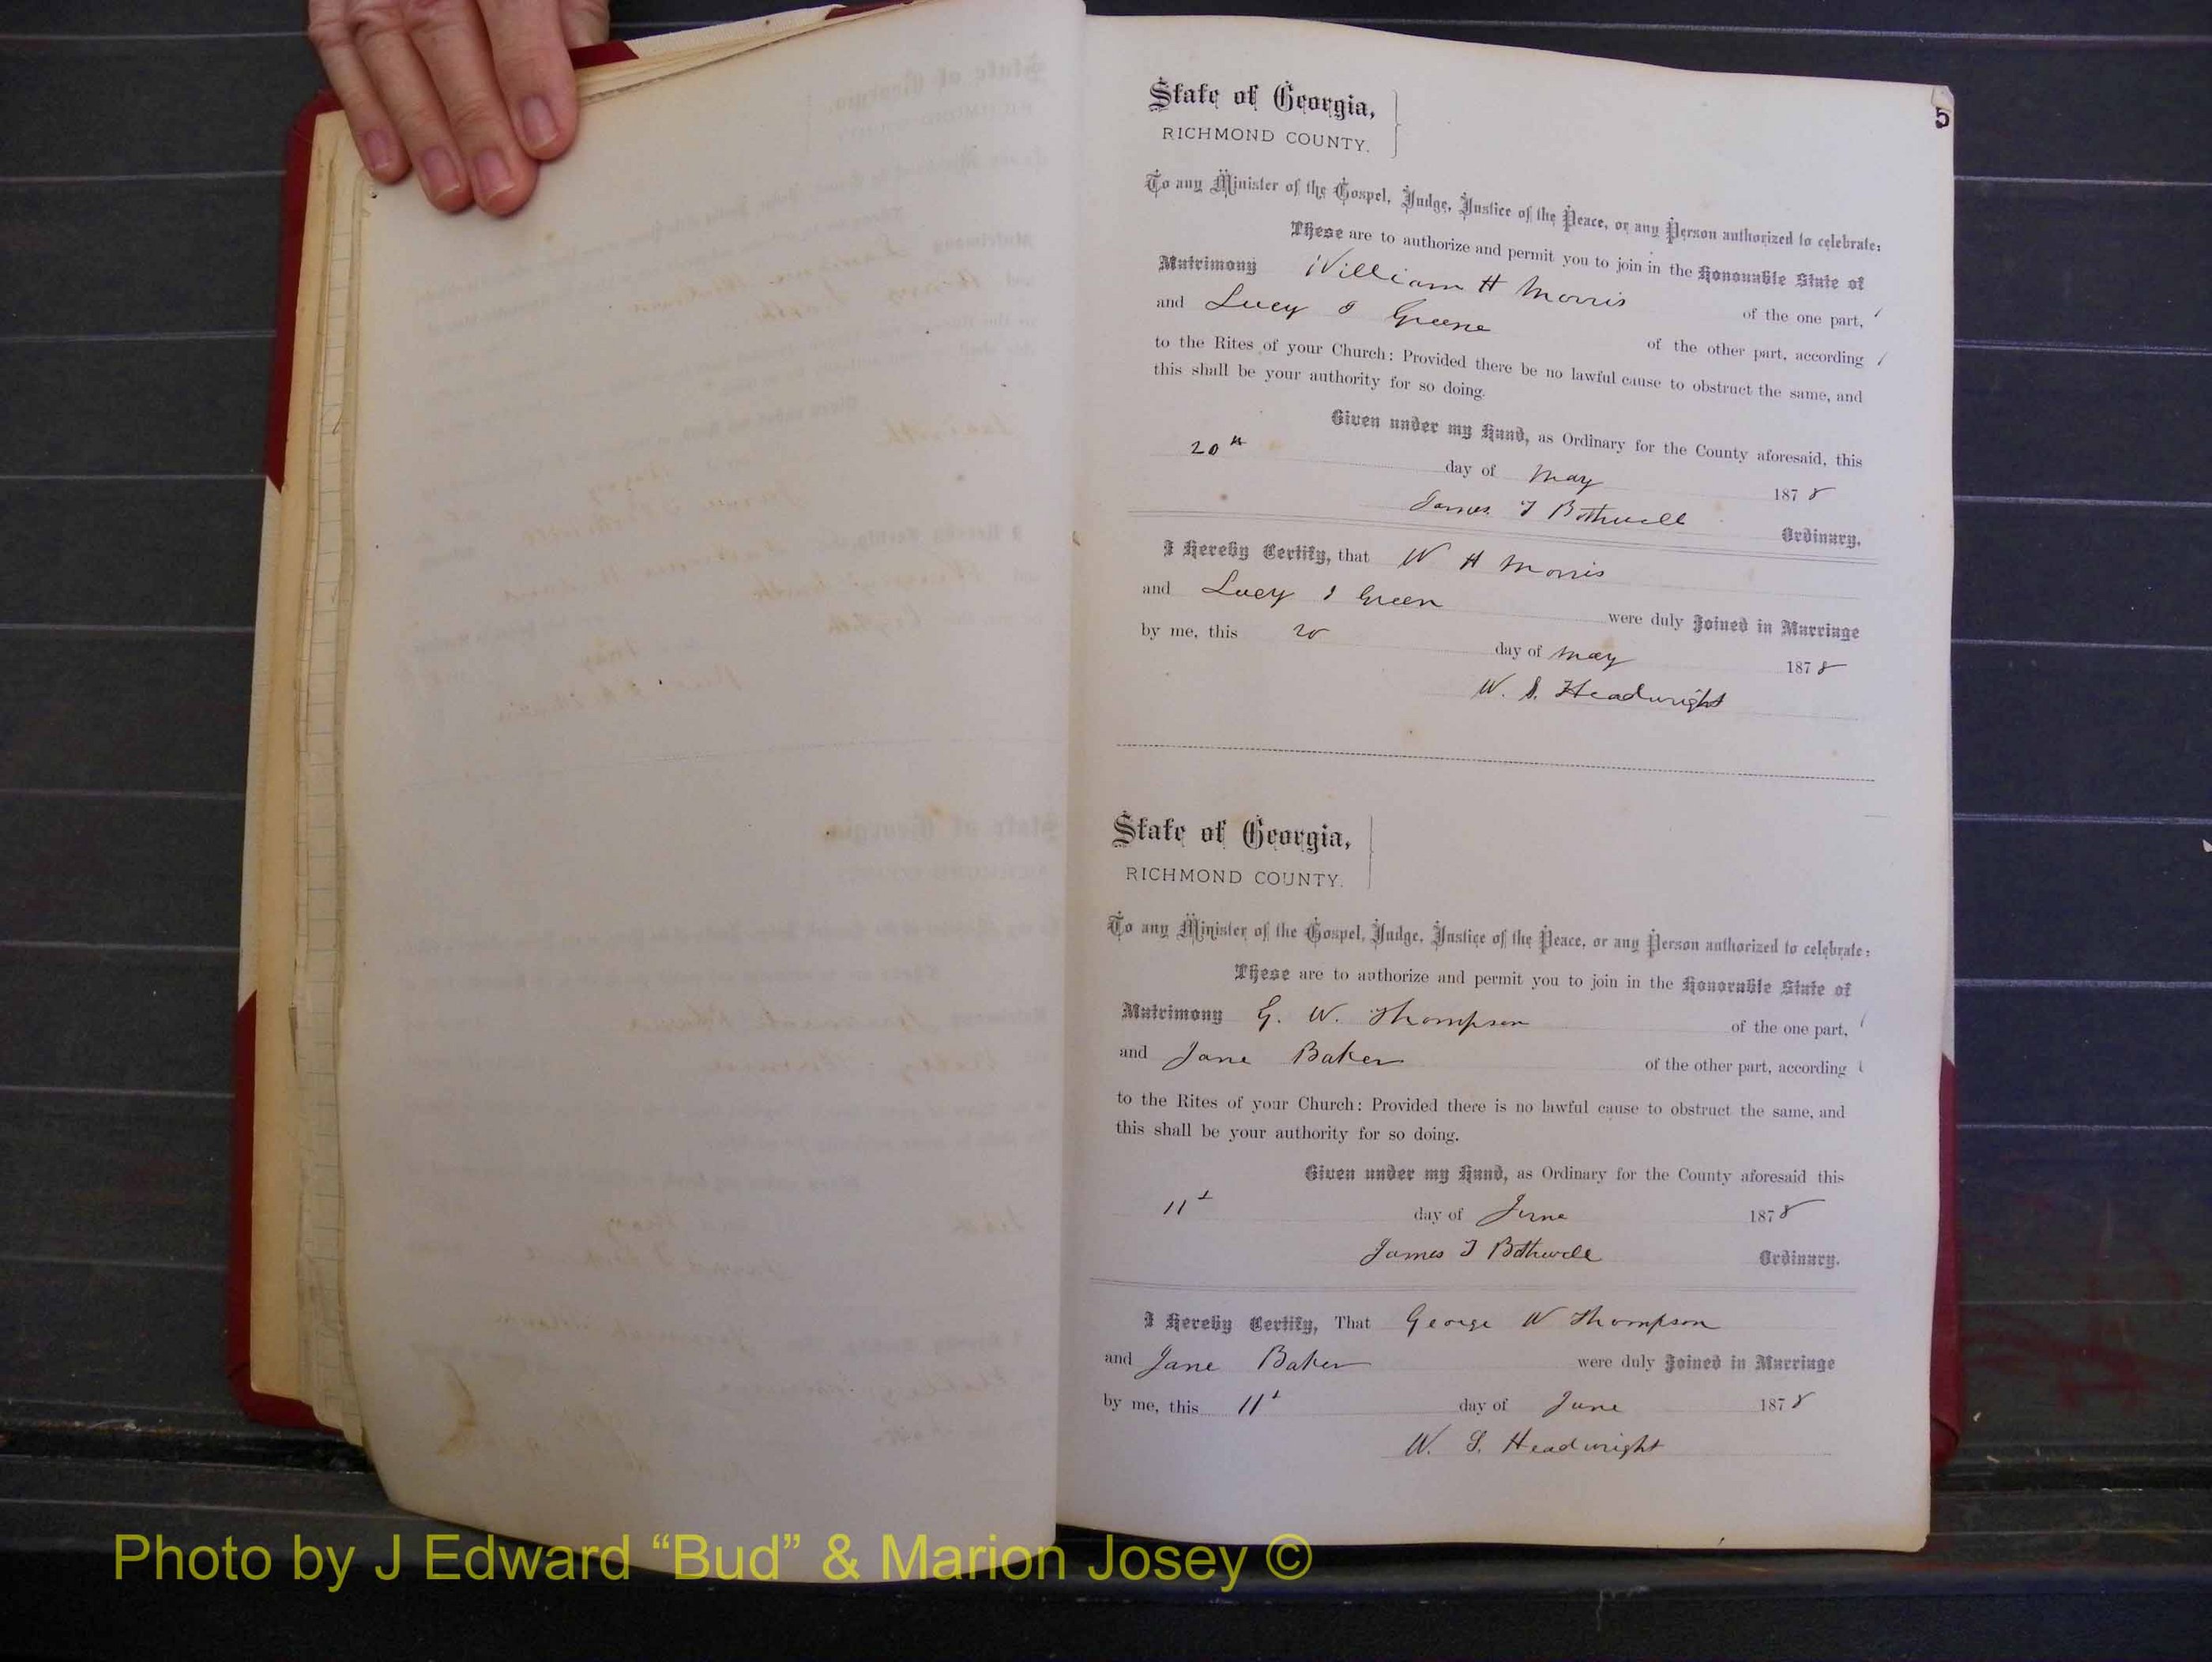 5
State of Georgia,
RICHMOND COUNTY.
To any Minister of the Gospel, Judge, Justice of the Peace, or any Person authorized to celebrate:
These are to authorize and permit you to join in the Honouable State of
Matrimony William H Morris of the one part,
and Lucy J Greene of the other part, according
to the Rites of your Church: Provided there be no lawful cause to obstruct the same, and
this shall be your authority for so doing.
Given under my Hand, as Ordinary for the County aforesaid, this
20th day of May 1878
James T Bothwell Ordinary.
I Hereby Certify, that W H Morris
and Lucy J Green were duly Joined in Marriage
by me, this 20 day of May 1878
W. S. Headwright
State of Georgia,
RICHMOND COUNTY.
To any Minister of the Gospel, Judge, Justice of the Peace, or any Person authorized to celebrate:
These are to authorize and permit you to join in the Honorable State of
Matrimony G. W. Thompson of the one part,
and Jane Baker of the other part, according
to the Rites of your Church: Provided there is no lawful cause to obstruct the same, and
this shall be your authority for so doing.
Given under my Hand, as Ordinary for the County aforesaid this
11t day of June 1878
James T Bothwell Ordinary.
I Hereby Certify, That George W Thompson
and Jane Baker were duly Joined in Marriage
by me, this 11t day of June 1878
W. S. Headwright
Photo by J Edward “Bud” & Marion Josey ©